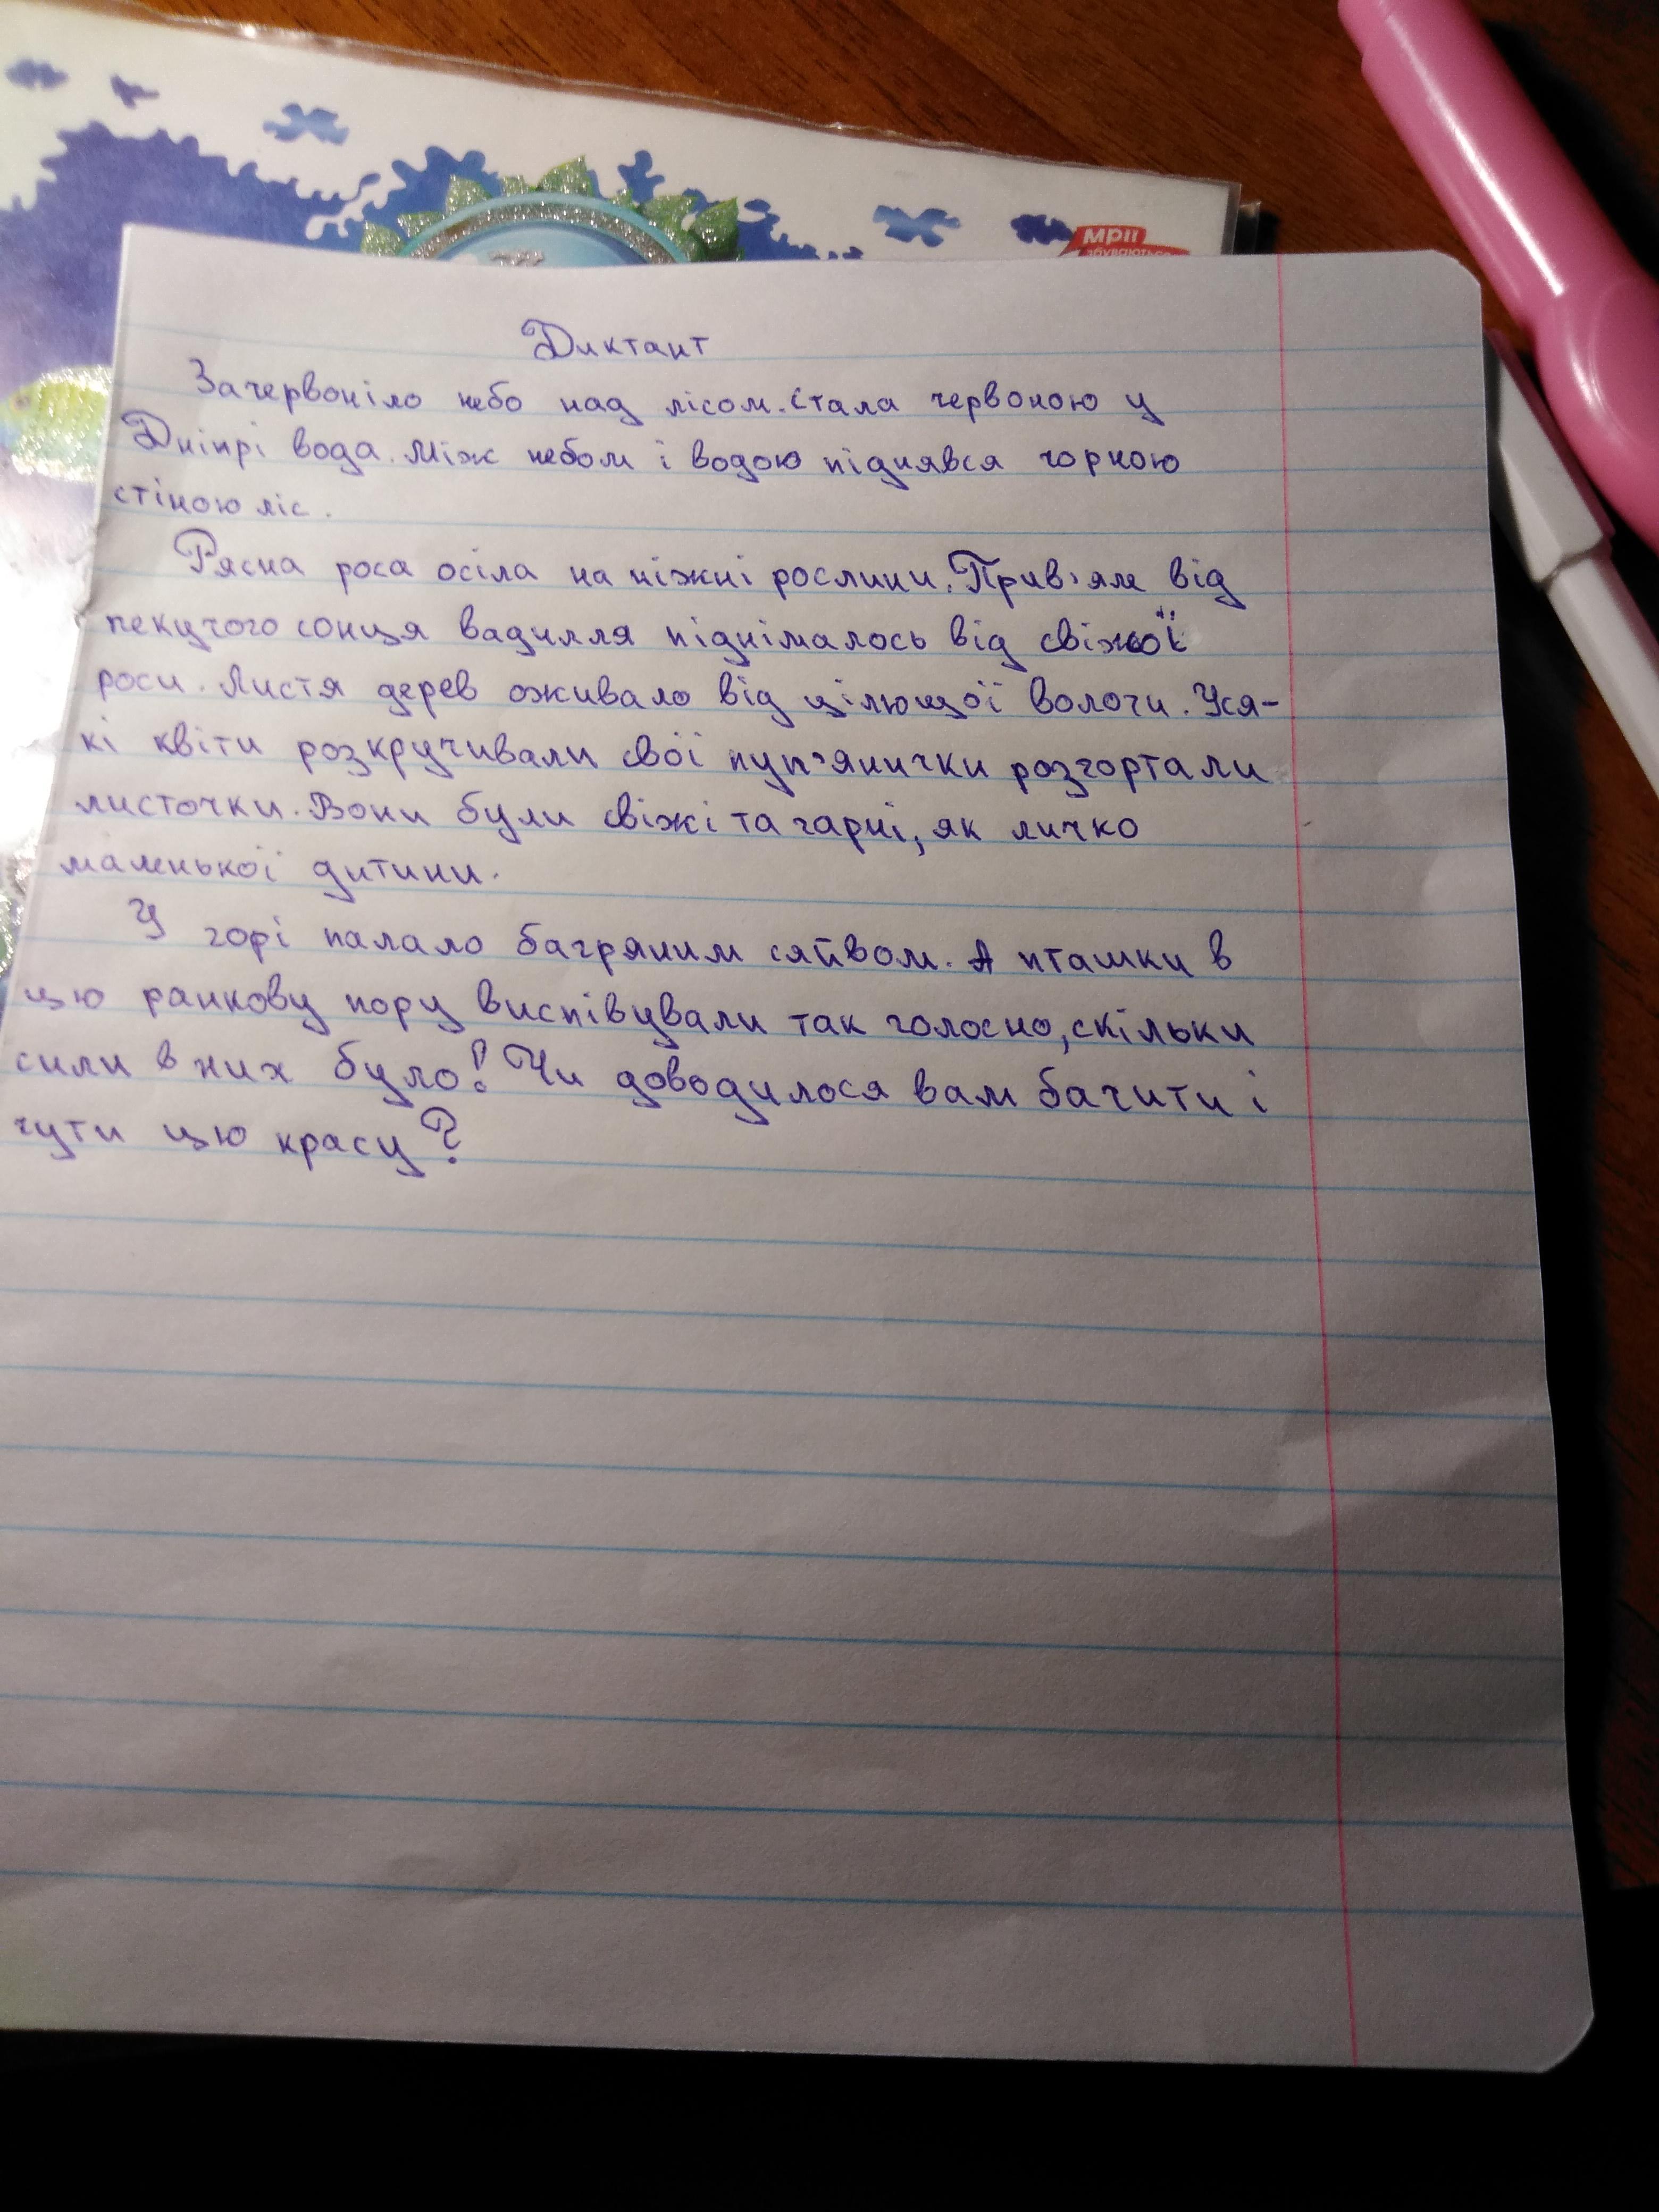 мрії
збуваються
Диктант
Зачервоніло небо над лісом. Стала червоною у
Дніпрі вода. Між небом і водою піднявся чорною
стіною ліс.
Рясна роса осіла на ніжні рослини. Прив'яле від
пекучого сонця бадилля піднімалось від свіжої
роси. Листя дерев оживало від цілющої вологи. Уся-
кі квіти розкручивали свої пуп'янички розгортали
листочки. Вони були свіжі та гарні, як личко
маленької дитини.
У горі палало багряним сяйвом. А пташки в
цю ранкову пору виспівували так голосно, скільки
сили в них було! Чи доводилося вам бачити і
чути цю красу?